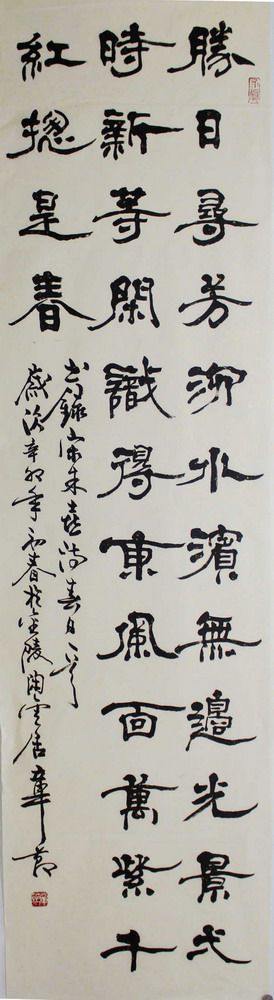 勝日尋芳泗水濱無邊光景弌
時新等閑識得東風面萬紫千
紅揔是春
書錄宋朱熹詩春日一首
歲次辛卯年初春於金陵陶雲居